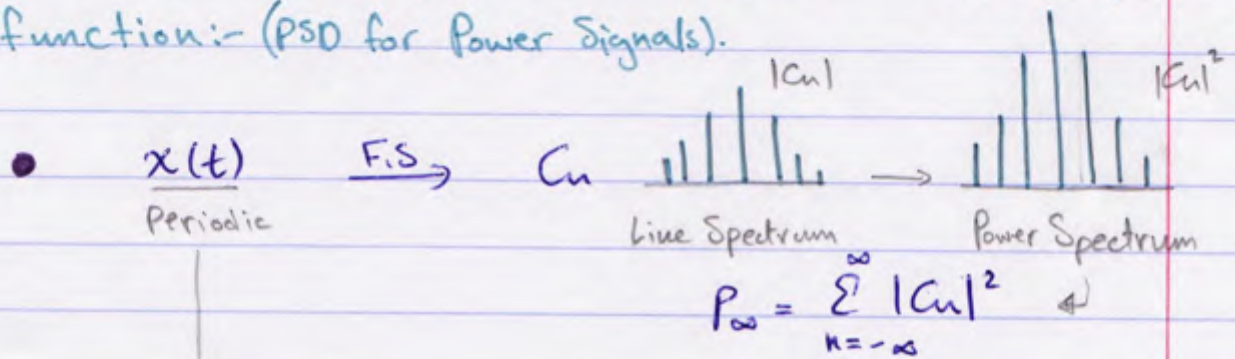 function:- (PSD for Power Signals).
|Cn| |Cn|²
x(t) F.S → Cn →
Periodic Line Spectrum Power Spectrum
P∞ = Σ |Cn|² (n=-∞ to ∞)